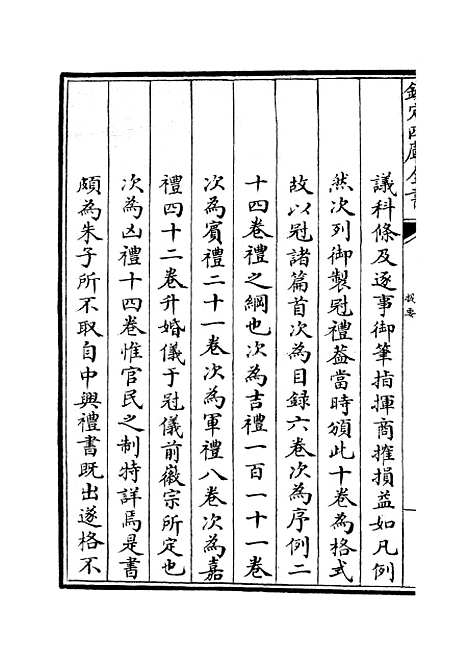 欽定四庫全書
提要
議科條及逐事御筆指揮商搉損益如凡例
然次列御製冠禮葢當時頒此十卷為格式
故以冠諸篇首次為目録六卷次為序例二
十四卷禮之綱也次為吉禮一百一十一卷
次為賓禮二十一卷次為軍禮八卷次為嘉
禮四十二卷升婚儀于冠儀前徽宗所定也
次為凶禮十四卷惟官民之制特詳焉是書
頗為朱子所不取自中興禮書既出遂格不